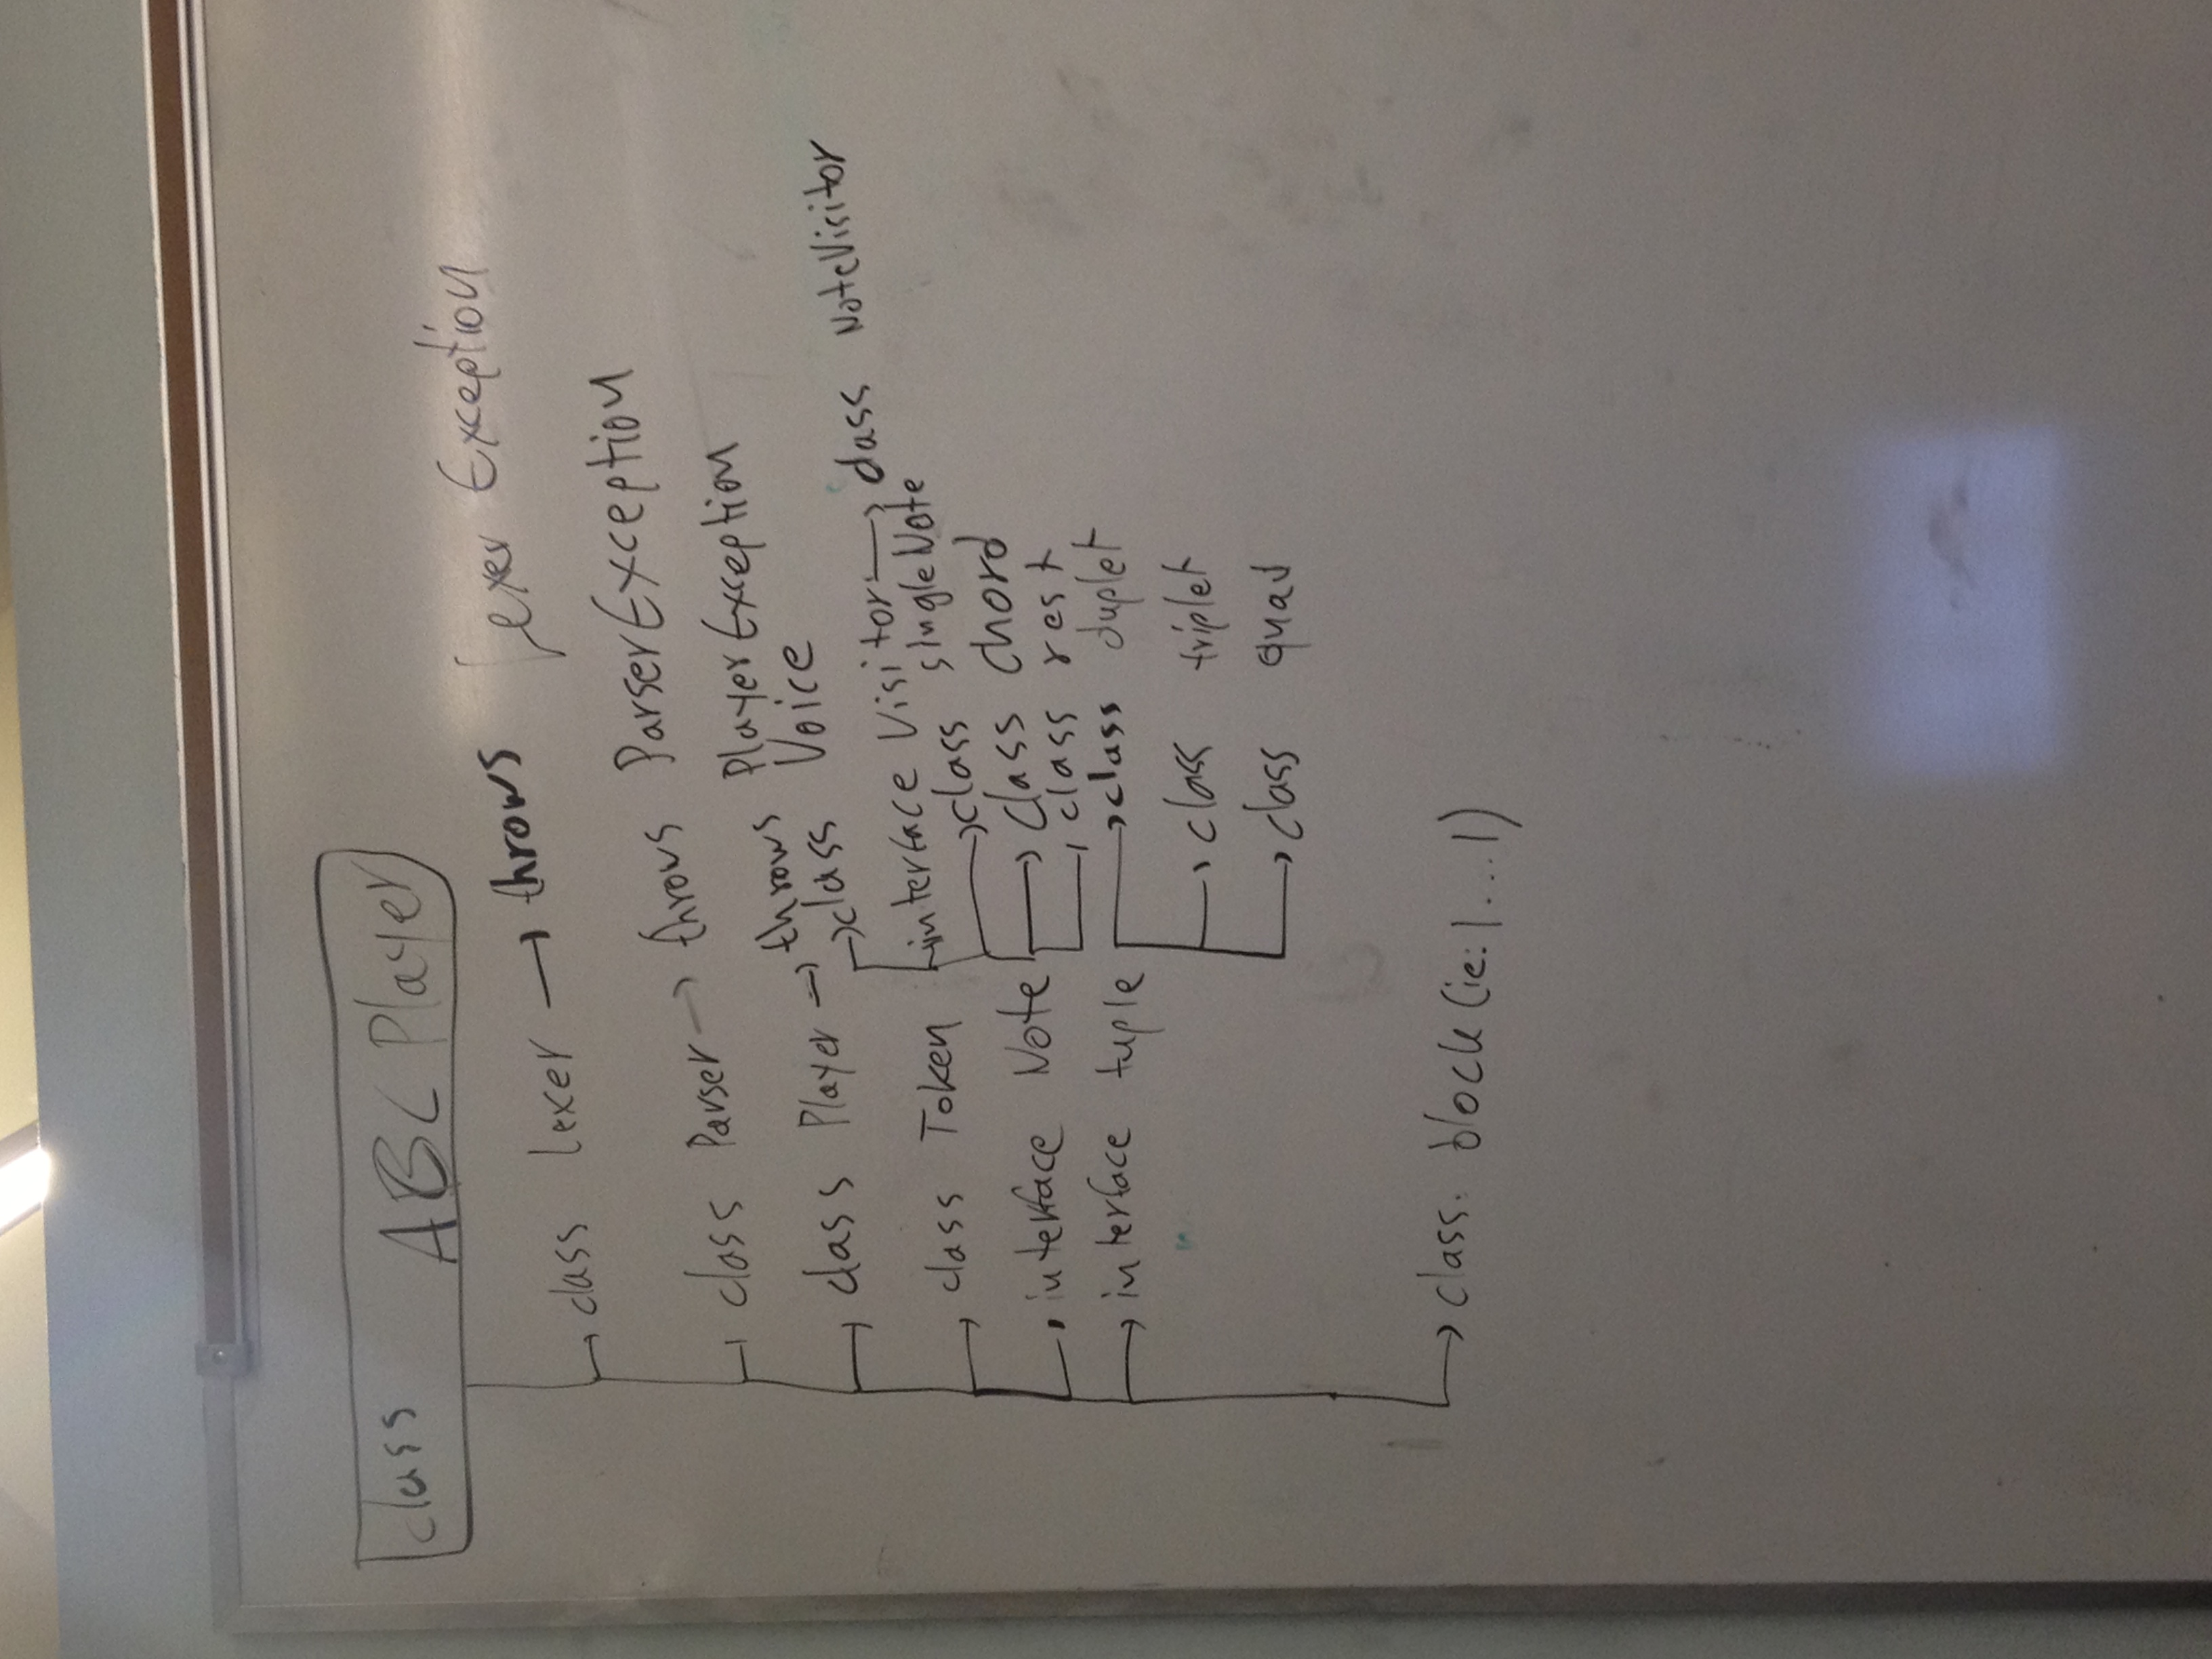 class ABC Player
class lexer → throws Lexer Exception
class Parser → throws ParserException
class Player → throws PlayerException
class Voice
class Token
interface Visitor → class NoteVisitor
class singleNote
interface Note
class chord
class rest
interface tuple
class duplet
class triplet
class quad
class. block (ie: |...|)